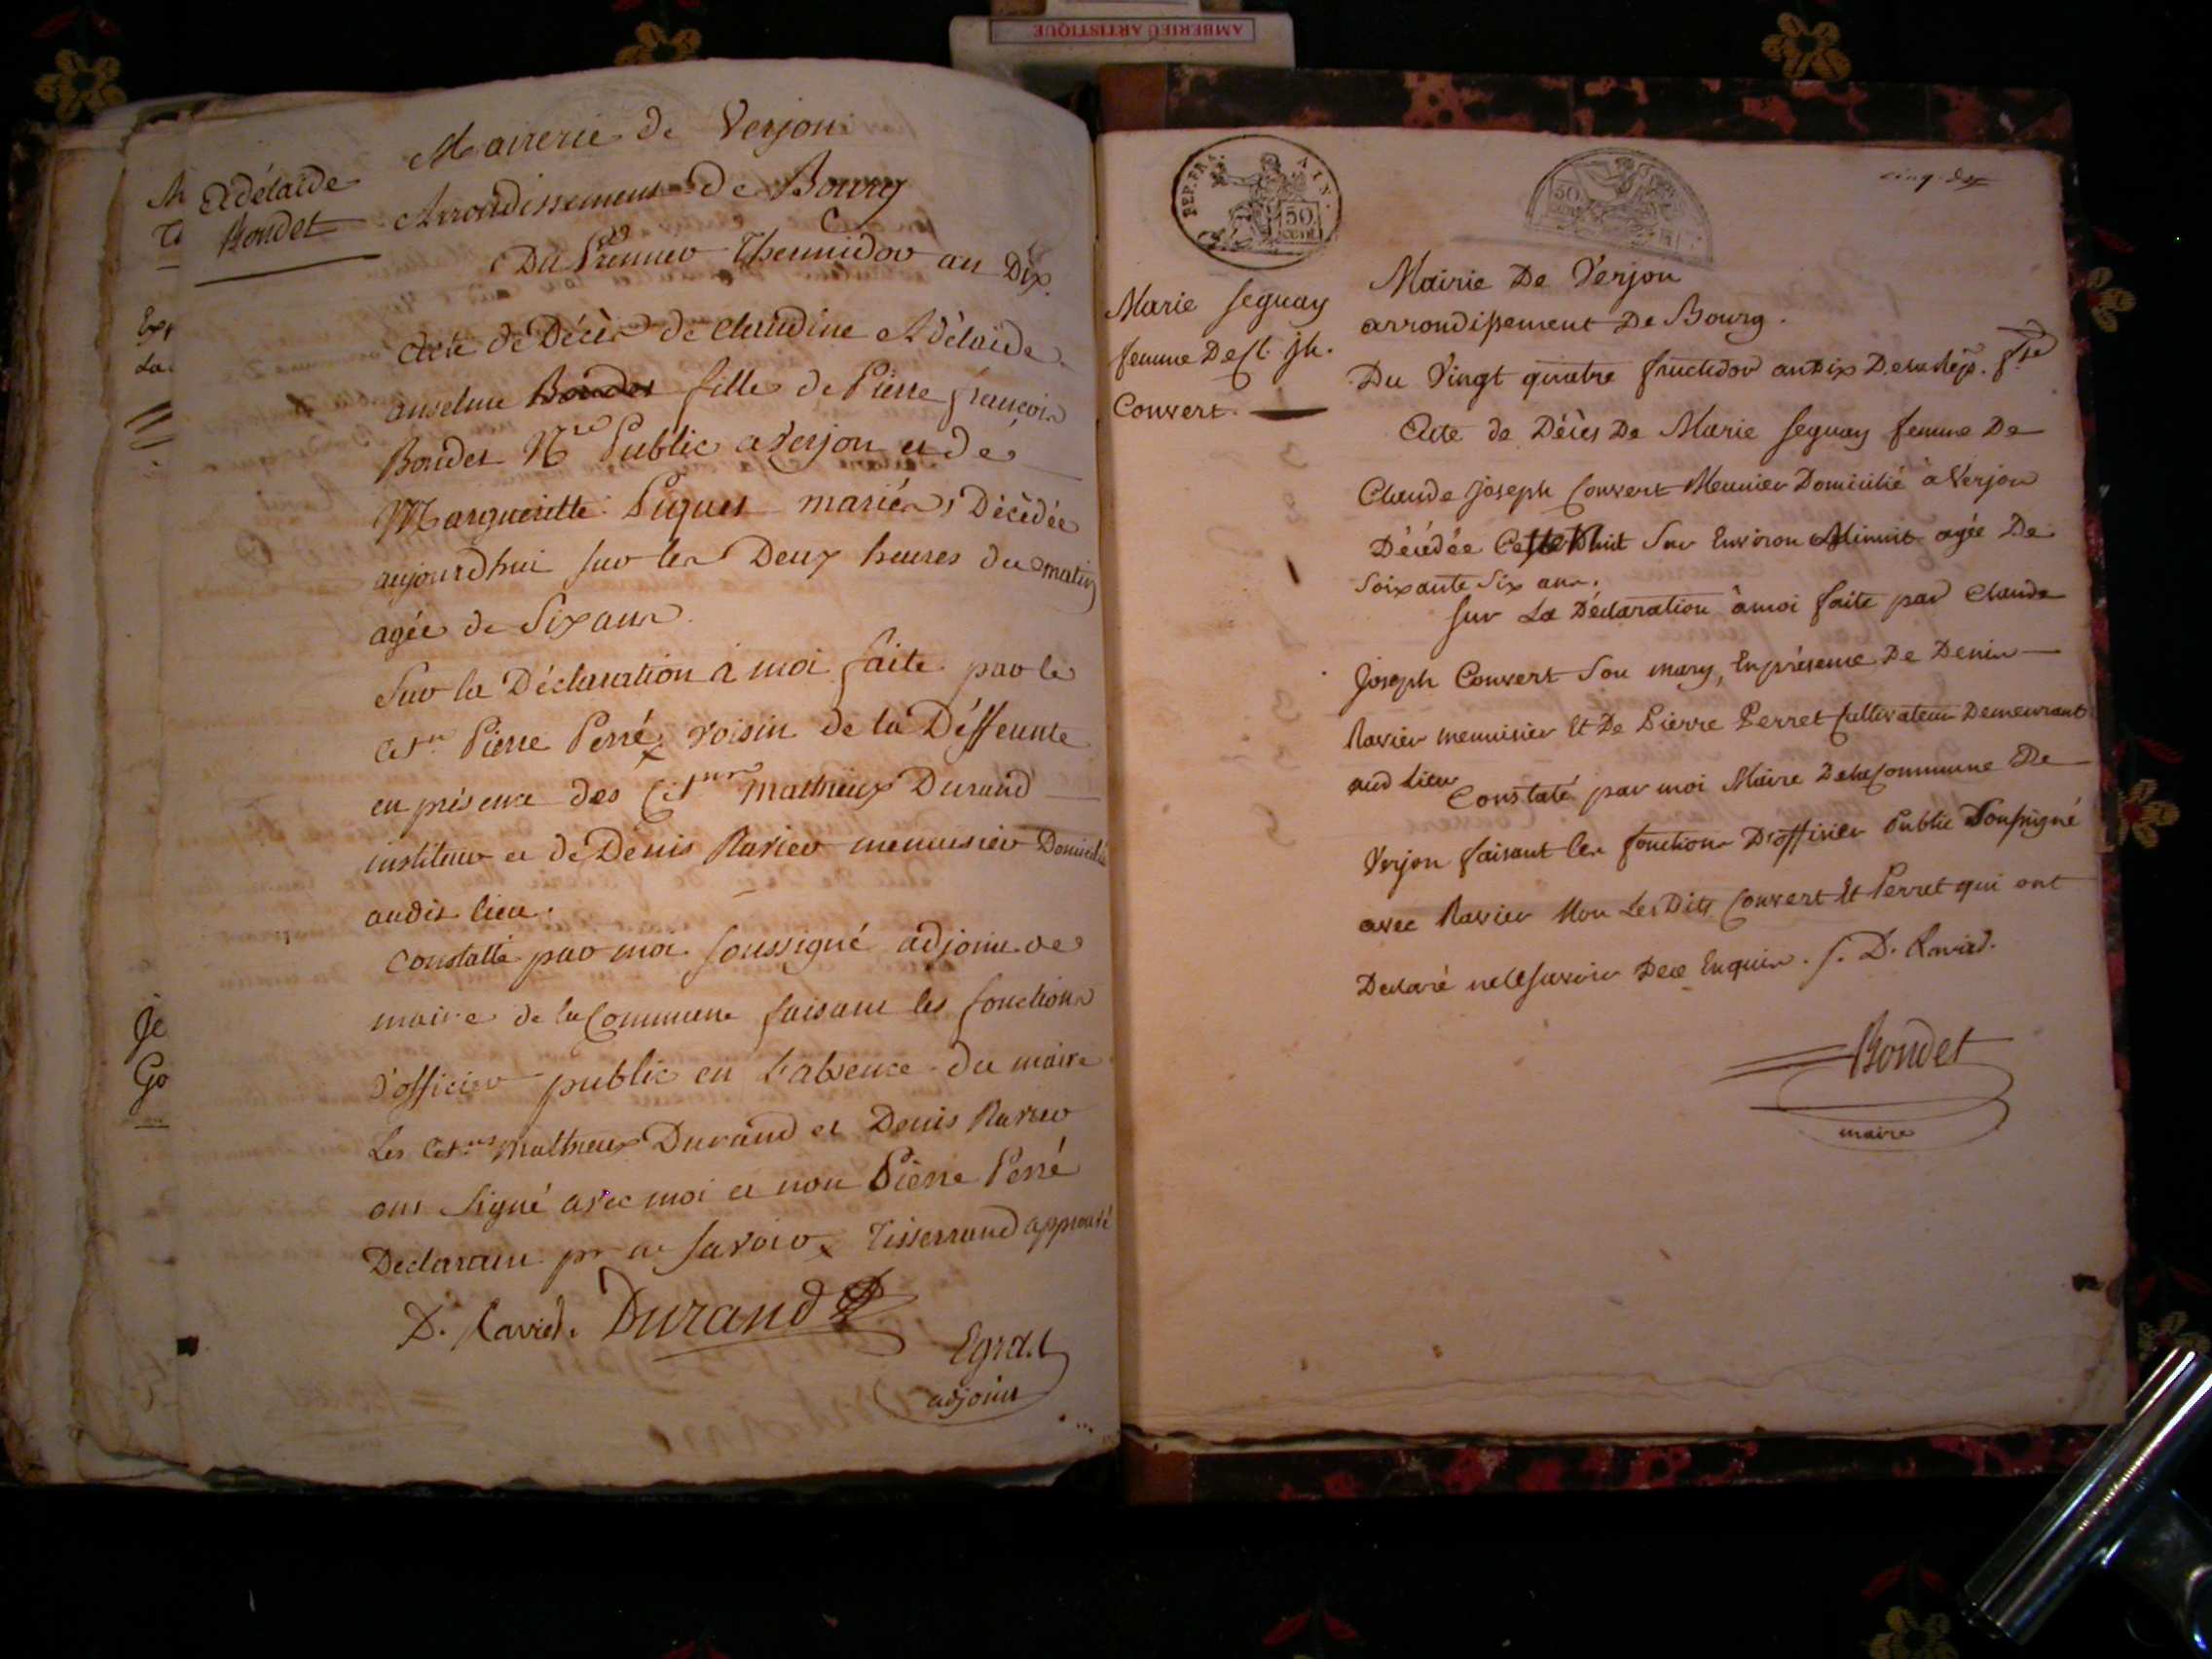 AMBERIEU ARTISTIQUE
Adélaide
Bondet
Mairerie de Verjon
Arrondissement de Bourg
Du Premier Thermidor an Dix
Acte de Décès de Claudine Adélaïde
anselme Bondet fille de Pierre françois
Bondet Nre Public a Verjon et de
Margueritte Piquet mariés, Décédée
aujourdhui sur les Deux heures du matin
agée de Six ans
Sur la Déclaration à moi faite par le
Cit.n Pierre Perré x voisin de la Deffeunte
en présence des Cit.ns mathieux Durand
instituteur et de Denis Ravier menuisier Domiciliés
audit lieu.
Constatté par moi soussigné adjoint de
maire de la Commune faisant les fonctions
d'officier public en l'absence du maire
Les Cit.ns mathieux Durand et Denis Ravier
ont Signé avec moi et non Pierre Perré
Declarant ne savoir x Tisserrand approuvé
D. Ravier. Durand
Egraz
adjoint
Ex
La
je
Go
REP. FRA. AIN.
50
CENT.
50
cinq. dix
Marie Seguay
femme De Cl. Jh.
Convert.
Mairie De Verjon
arrondissement De Bourg.
Du Vingt quatre fructidor an Dix De la Rép. fse
Acte de Décès De Marie Seguay femme De
Claude Joseph Convert Meunier Domicilié à Verjon
Décédée Cette Nuit Sur Environ Minuit agée De
Soixante Six ans.
Sur La Déclaration à moi faite par Claude
Joseph Convert Son mary, En présence De Denis
Ravier menuisier Et De Pierre Perret Cultivateur Demeurant
aud Lieu
Constaté par moi Maire De la Commune De
Verjon faisant les fonctions D'officier Public Soussigné
avec Ravier Non Les Dits Convert Et Perret qui ont
Declaré ne le Savoir De ce Enquis. S. D. Ravier.
Bondet
maire